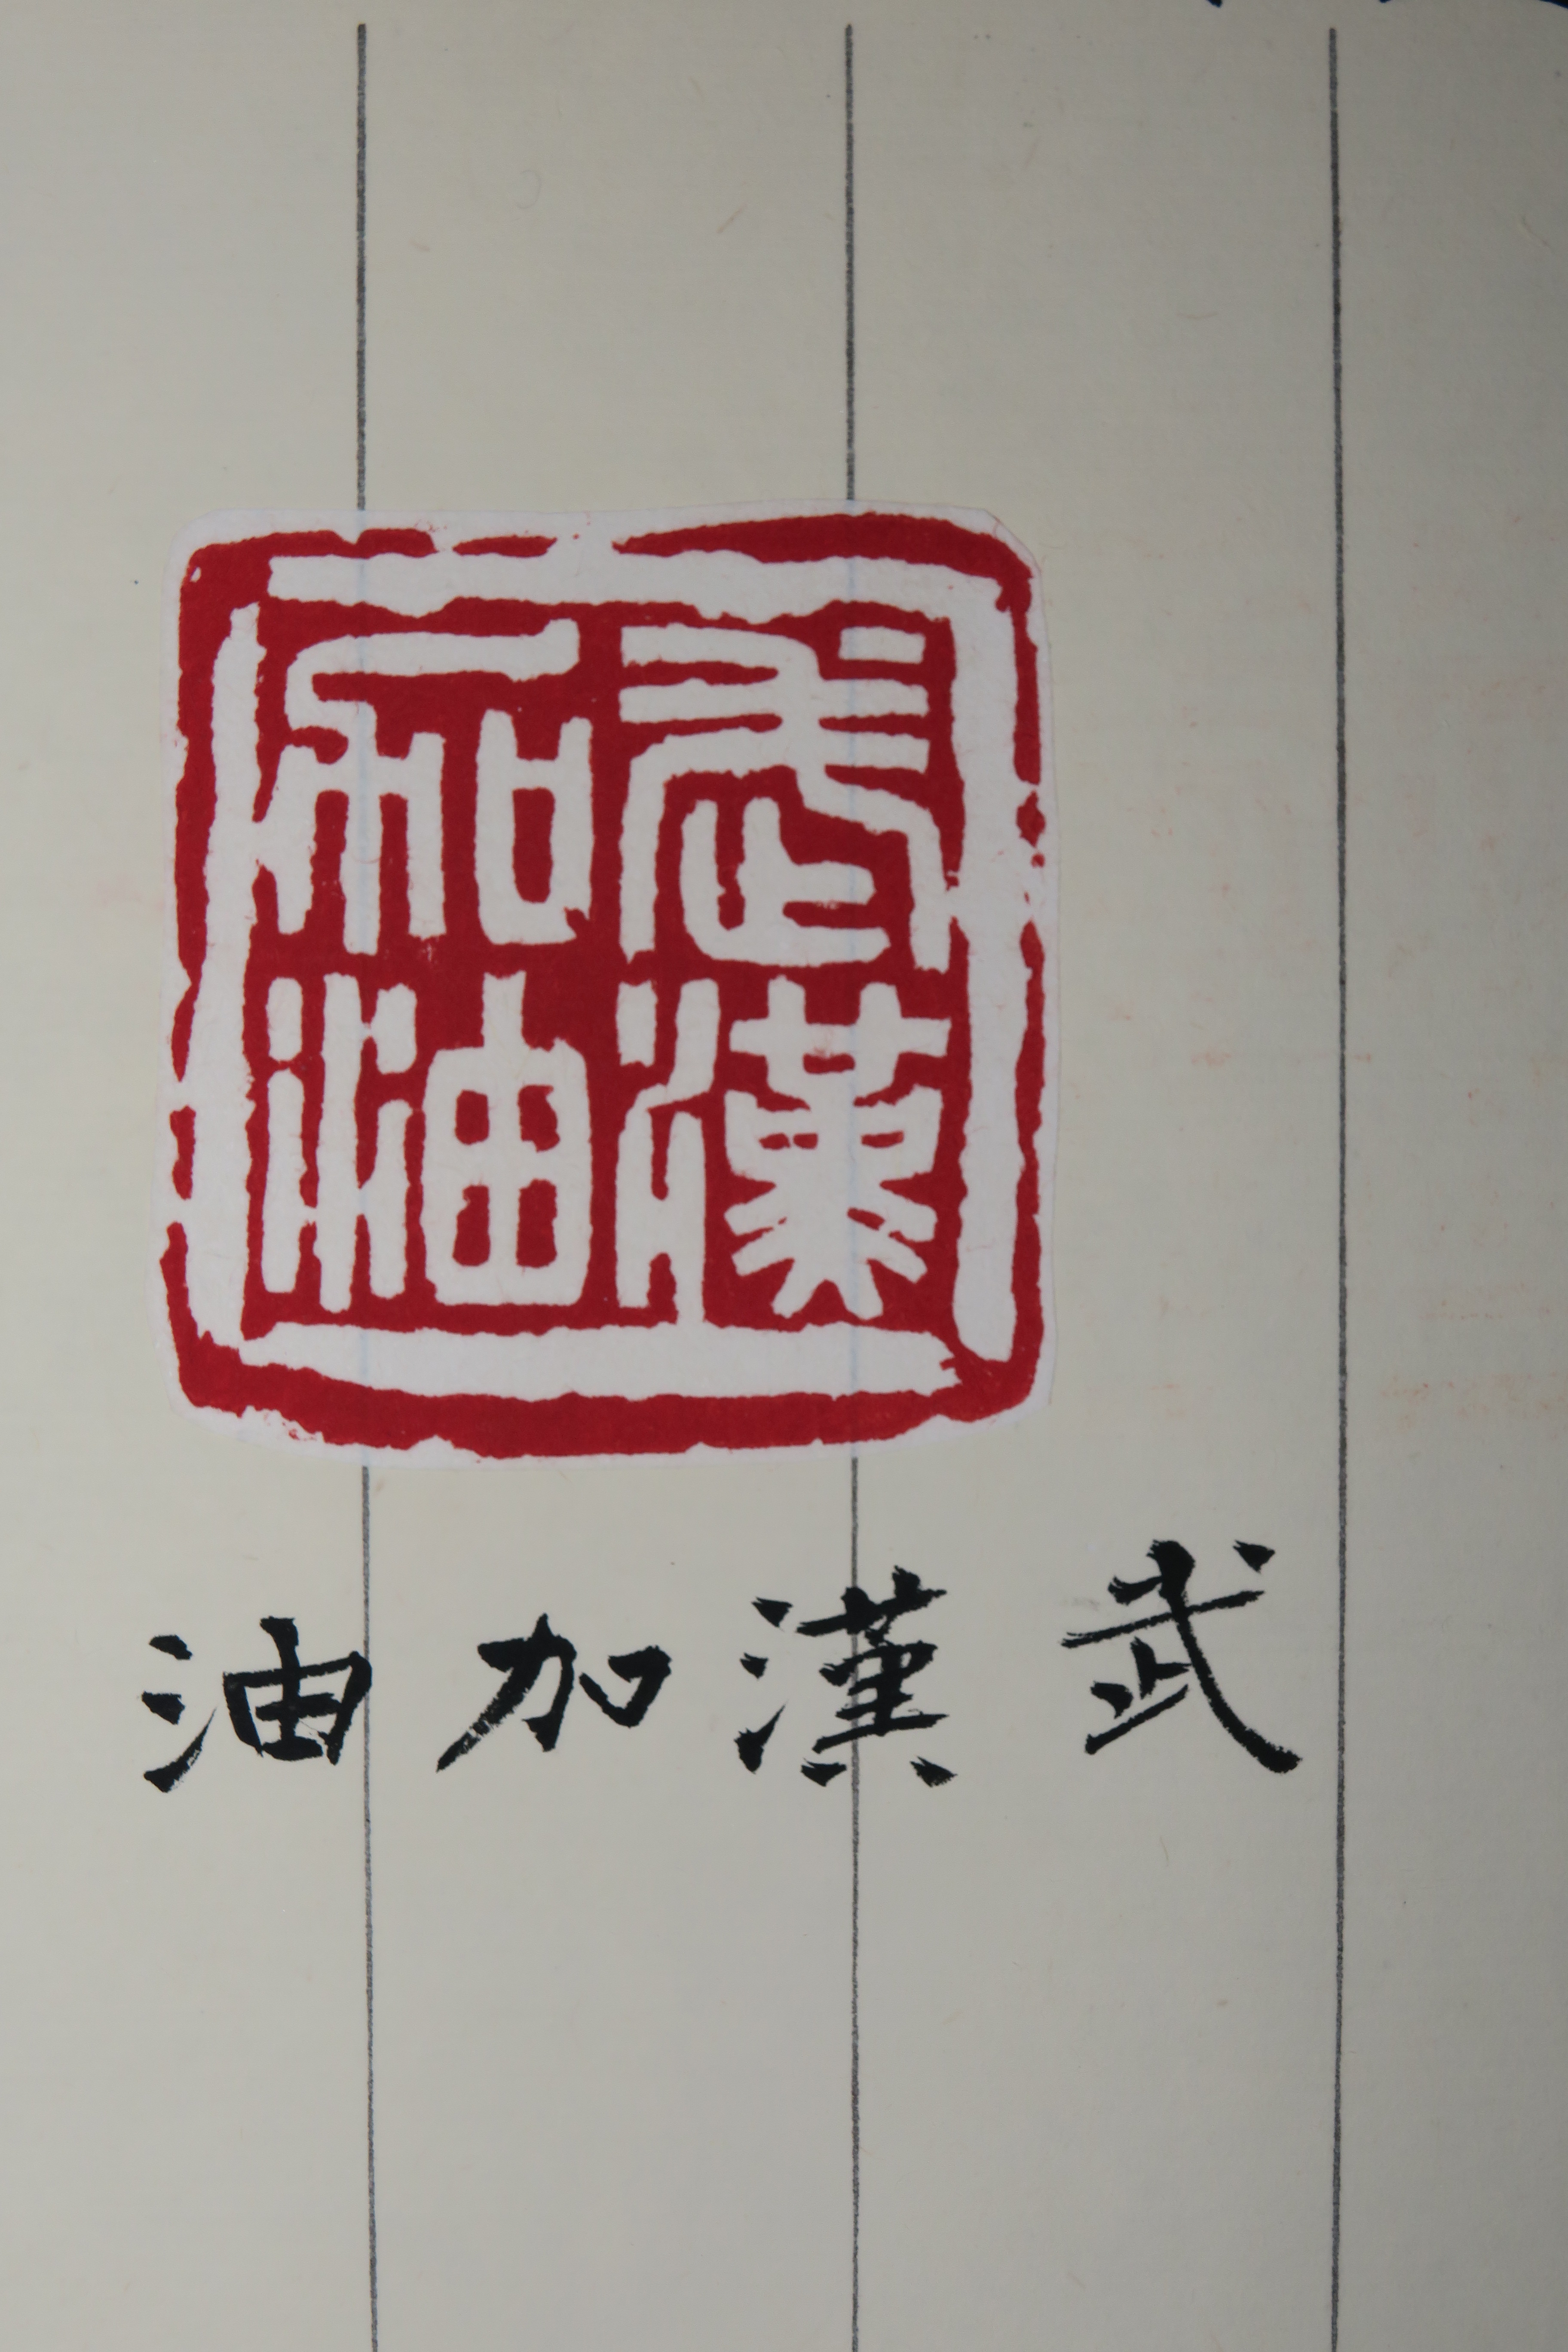 武漢
加油
武漢加油